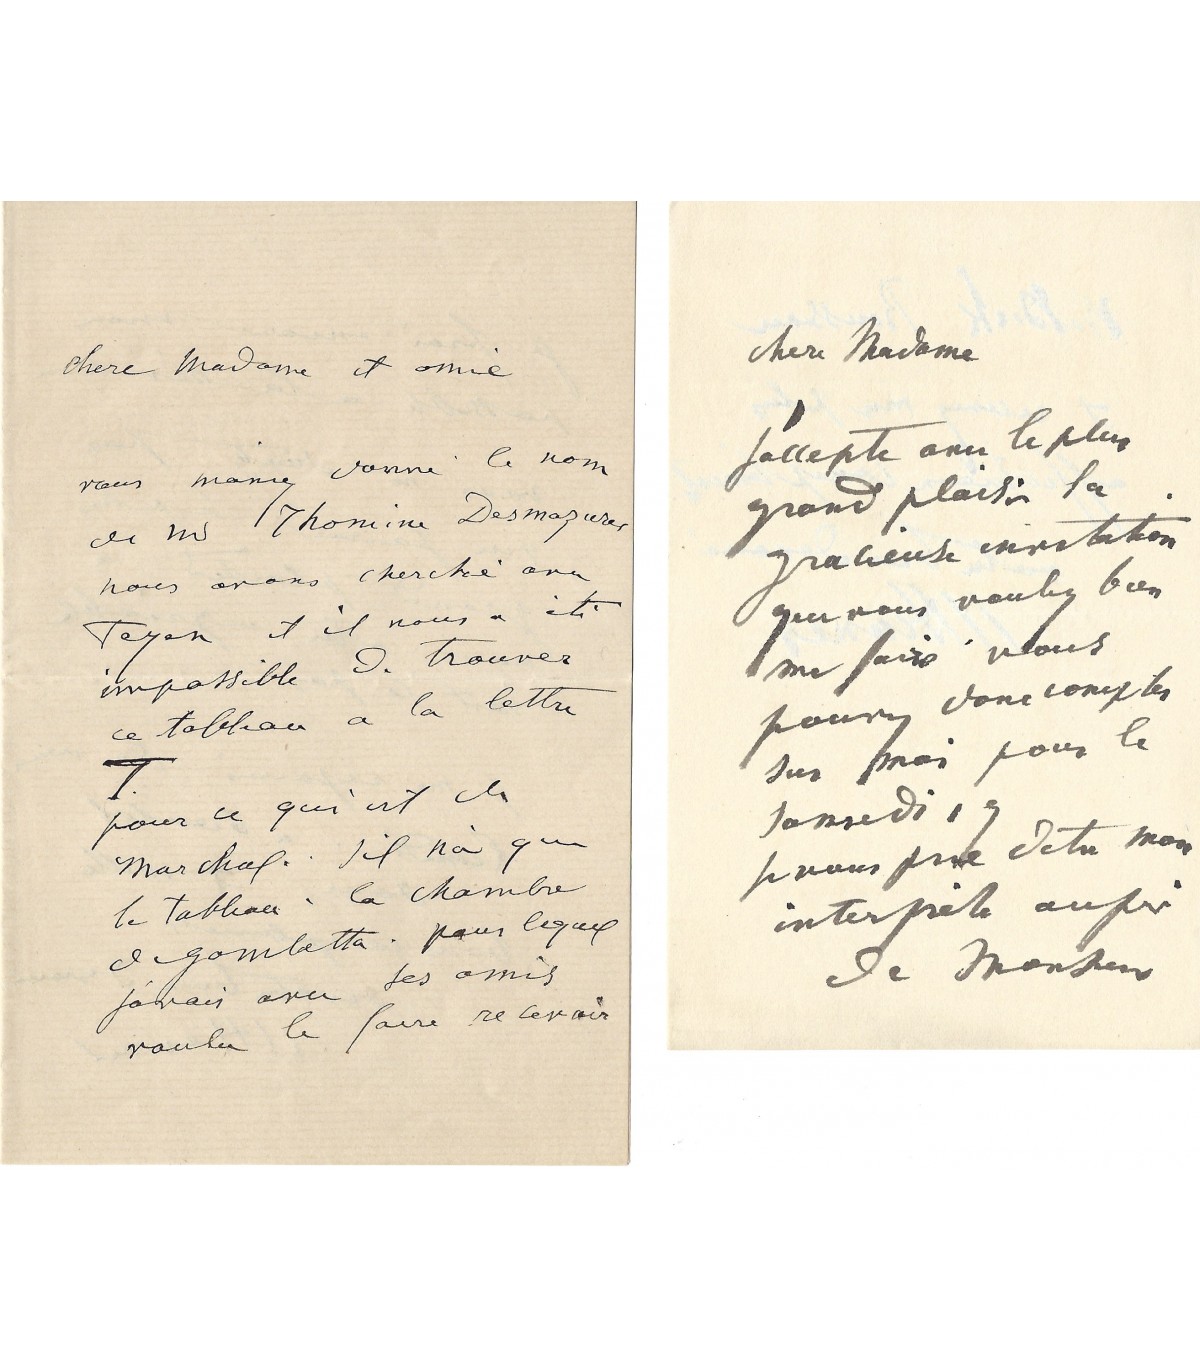 chere Madame et amie
vous m'aviez donné le nom
de Mr Thomine Desmazures
nous avons cherché avec
et il nous a été
impossible de trouver
ce tableau a la lettre
T.
pour ce qui est de
Marchal. s'il n'a que
le tableau. la chambre
de gambetta. pour lequel
j'avais avec ses amis
voulu le faire recevoir
chere Madame
j'accepte avec le plus
grand plaisir la
gracieuse invitation
que vous voulez bien
me faire vous
pouvez donc compter
sur moi pour le
samedi 19
je vous prie d'etre mon
interprète auprès
de Monsieur